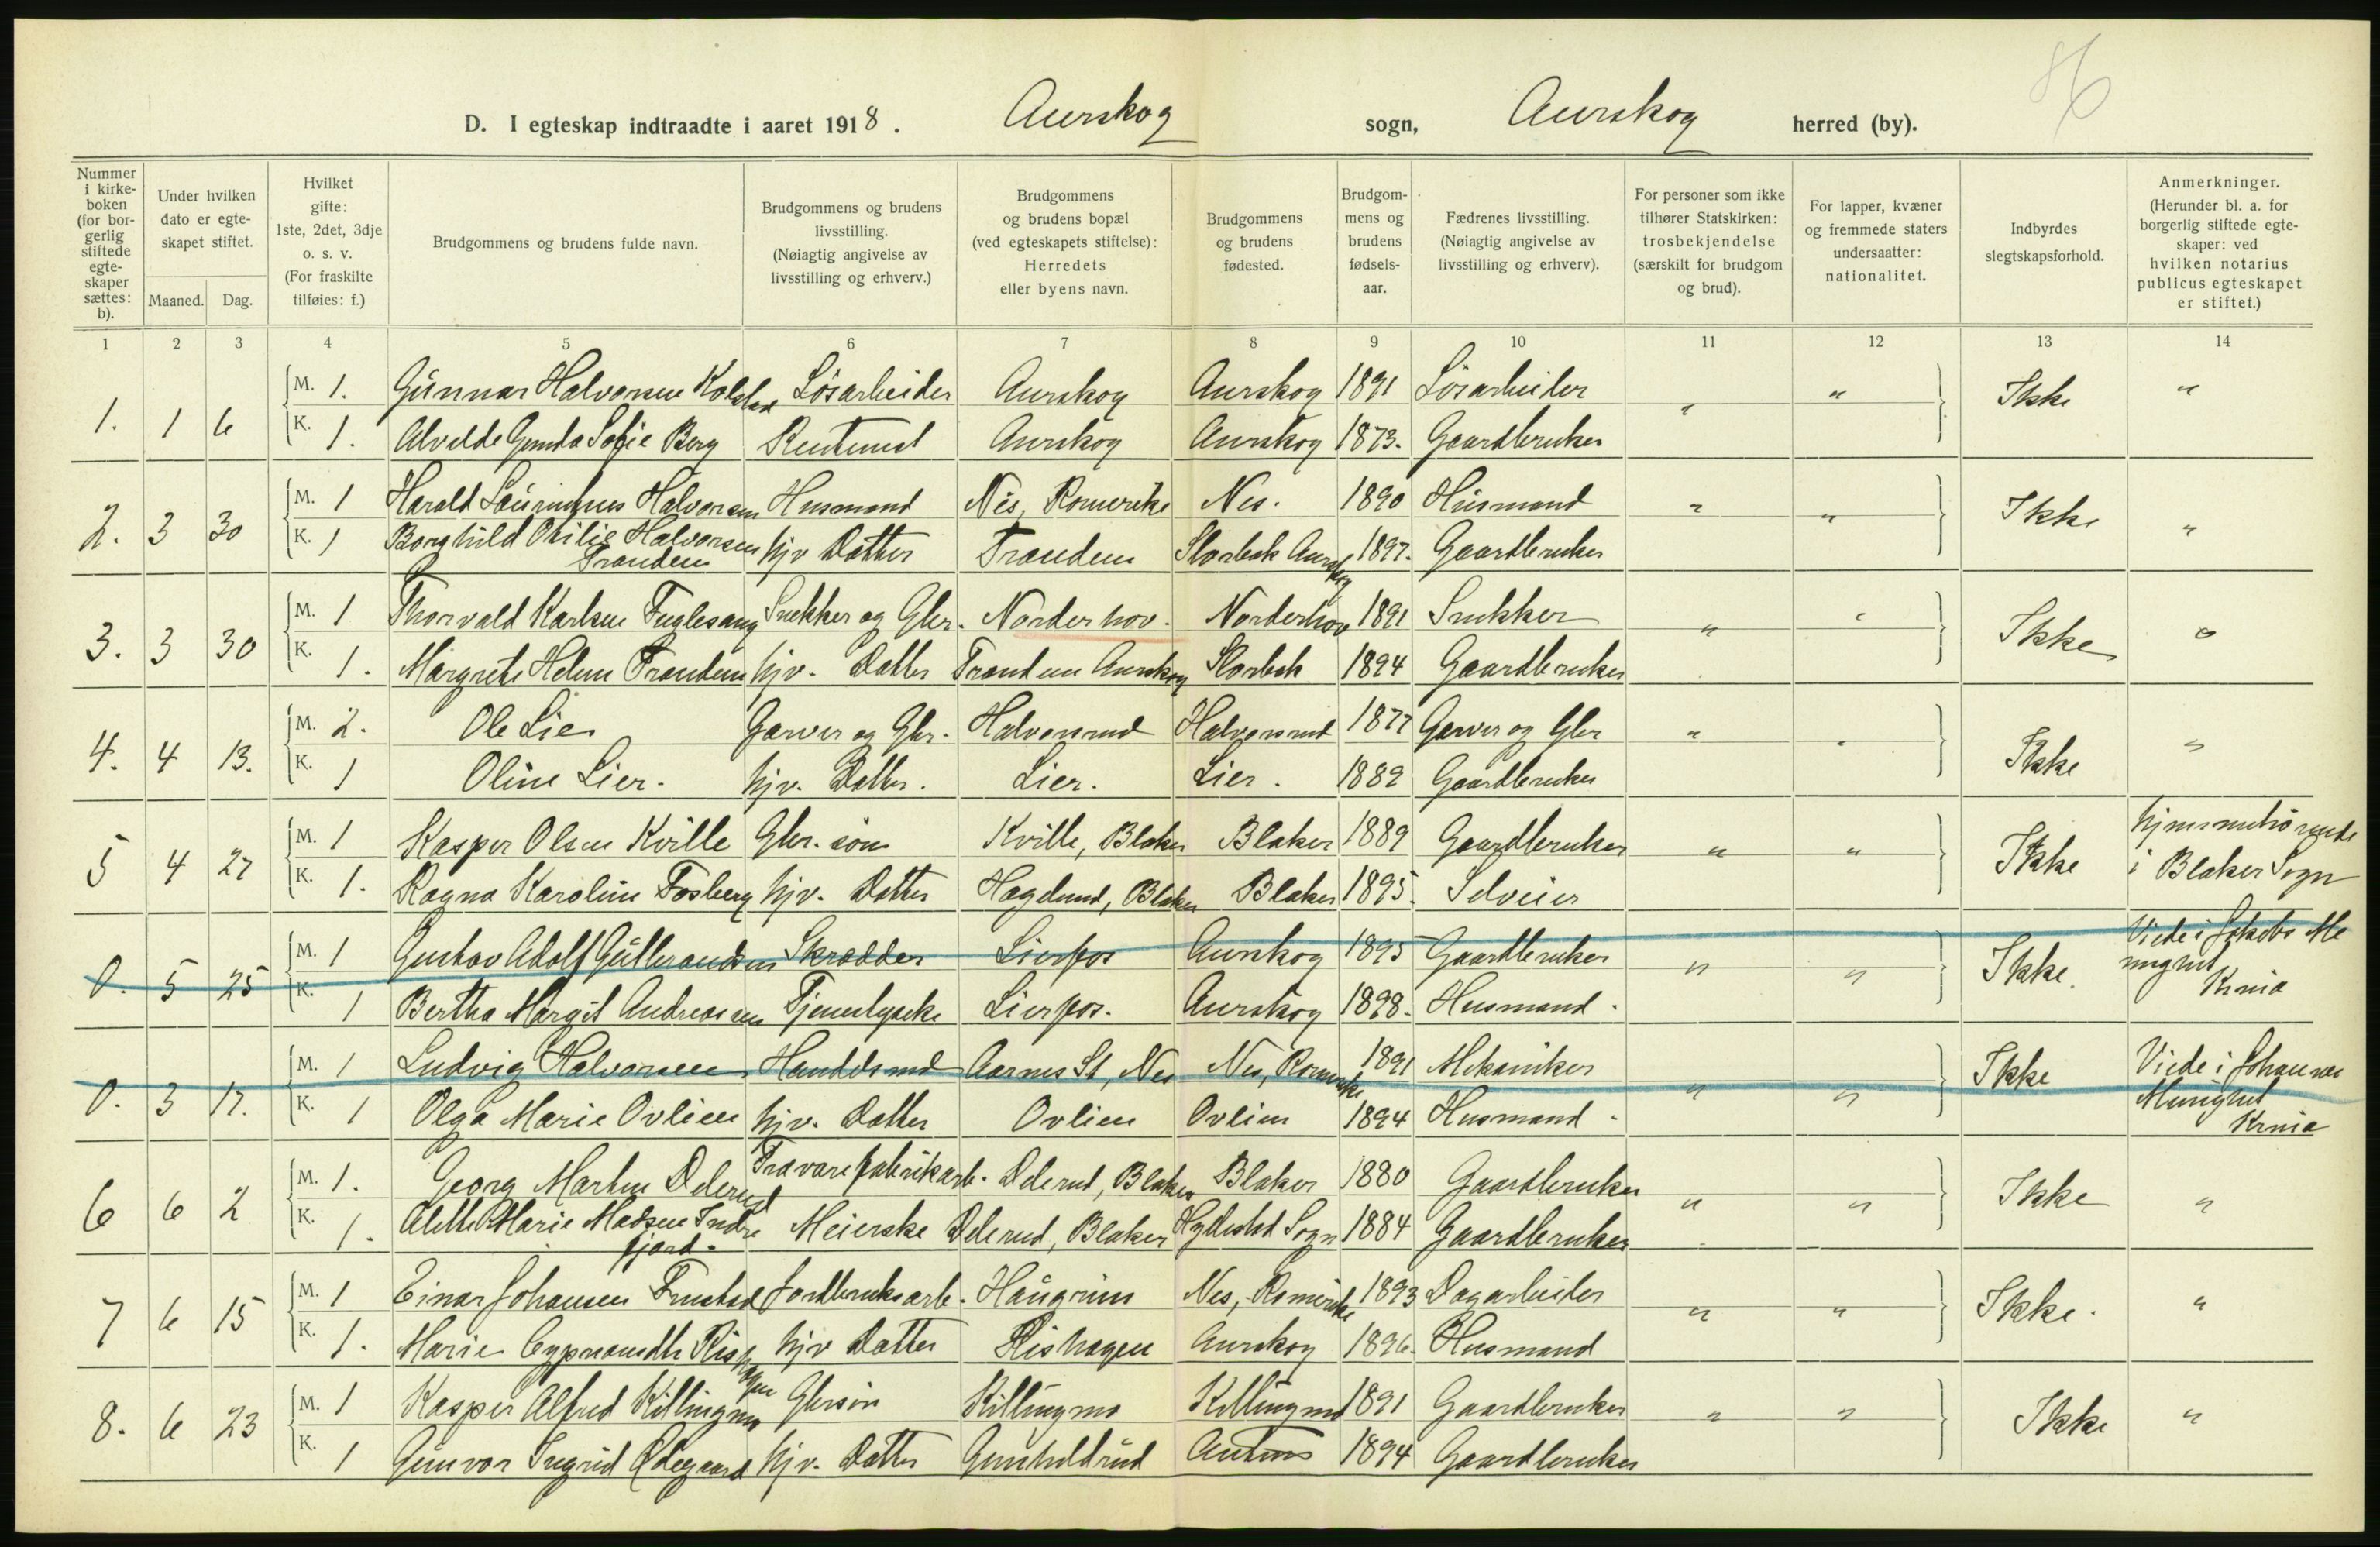 86
D. I egteskap indtraadte i aaret 1918. Aurskog sogn, Aurskog herred (by).
Nummer i kirke-boken (for bor-gerlig stiftede egte-skaper sættes: b).
Under hvilken dato er egte-skapet stiftet. Maaned. Dag.
Hvilket gifte: 1ste, 2det, 3dje o. s. v. (For fraskilte tilføies: f.)
Brudgommens og brudens fulde navn.
Brudgommens og brudens livsstilling. (Nøiagtig angivelse av livsstilling og erhverv.)
Brudgommens og brudens bopæl (ved egteskapets stiftelse): Herredets eller byens navn.
Brudgommens og brudens fødested.
Brudgom-mens og brudens fødsels-aar.
Fædrenes livsstilling. (Nøiagtig angivelse av livsstilling og erhverv).
For personer som ikke tilhører Statskirken: trosbekjendelse (særskilt for brudgom og brud).
For lapper, kvæner og fremmede staters undersaatter: nationalitet.
Indbyrdes slegtskapsforhold.
Anmerkninger. (Herunder bl. a. for borgerlig stiftede egte-skaper: ved hvilken notarius publicus egteskapet er stiftet.)
1 2 3 4 5 6 7 8 9 10 11 12 13 14
1. 1 6 M. 1. Gunnar Halvorsen Kolstad Løsarbeider Aurskog Aurskog 1891 Løsarbeider " " Ikke "
K. 1. Alvilde Gunda Sofie Berg Aurskog Aurskog 1873. Gaardbruker
2. 3 30 M. 1 Harald Halvorsen Husmand Nes, Romerike Nes. 1890 Husmand " " Ikke "
K. 1 Borghild Otilie Halvorsen Tranden hjv Datter Tranden Slorbek Aurskog 1897. Gaardbruker
3. 3 30 M. 1 Thorvald Karlsen Fuglesang Snekker og Gbr. Norderhov. Norderhov 1891 Snekker " " Ikke "
K. 1. Margrete Helene Tranden hjv. Datter Tranden Aurskog Slorbek 1894 Gaardbruker
4. 4 13. M. 2. Ole Lie Garver og Gbr. Halvorsrud Halvorsrud 1877 Garver og Gbr " " Ikke "
K. 1 Oline Lier. hjv. Datter. Lier. Lier. 1889 Gaardbruker
5 4 27 M. 1 Kasper Olsen Kville Gbr. søn Kville, Blaker Blaker 1889 Gaardbruker " " Ikke hjemmehørende
K. 1. Ragna Karoline Fosberg hjv. Datter Haglund, Blaker Blaker 1895. Selveier i Blaker Sogn
0. 5 25 M. 1 Gustav Adolf Gulbrandsen Skrædder Lierfos Aurskog 1895 Gaardbruker " " Ikke. Viede i Jakobs Me
nighet
K. 1 Bertha Margit Andreassen Lierfos. Aurskog 1898. Husmand. Krnia
0. 3 17. M. 1 Ludvig Halvorsen Handelsmd Aarnes St, Nes Nes, Romerike 1891 Mekaniker " " Ikke Viede i Johannes
K. 1 Olga Marie Ovlien hjv. Datter Ovlien Ovlien 1894 Husmand. Menighet
Krnia
6 6 2 M. 1. Georg Martin Delerud Trævarefabrikarb. Delerud, Blaker Blaker 1880 Gaardbruker " " Ikke "
K. 1. Alette Marie Madsen Indrefjord. Meierske Delerud, Blaker Sogn 1884 Gaardbruker
7 6 15 M. 1 Einar Johansen Jordbruksarb. Haugrim Nes, Romerike 1893 Dagarbeider " " Ikke. "
K. 1. Marie Rishagen hjv Datter Rishagen Aurskog 1896. Husmand
8. 6 23 M. 1 Kasper Alfred Killingmo Gbrsøn Killingmo Killingmo 1891 Gaardbruker " " Ikke "
K. 1 Gunvor Ingrid Ødegaard hjv. Datter Gunhildrud 1894 Gaardbruker